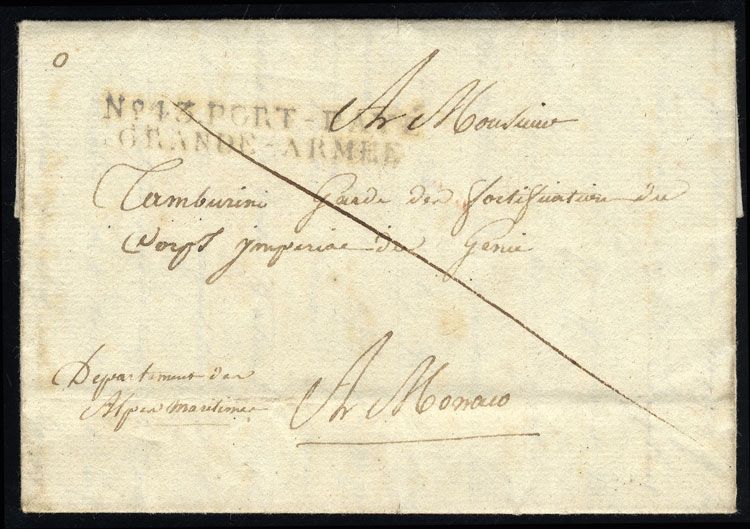 0
No. 43 PORT-PAYÉ
GRANDE-ARMÉE
A Monsieur
Tamburini Garde des fortifications du
Corps Imperial du Genie
Departement des
Alpes maritimes
A Monaco